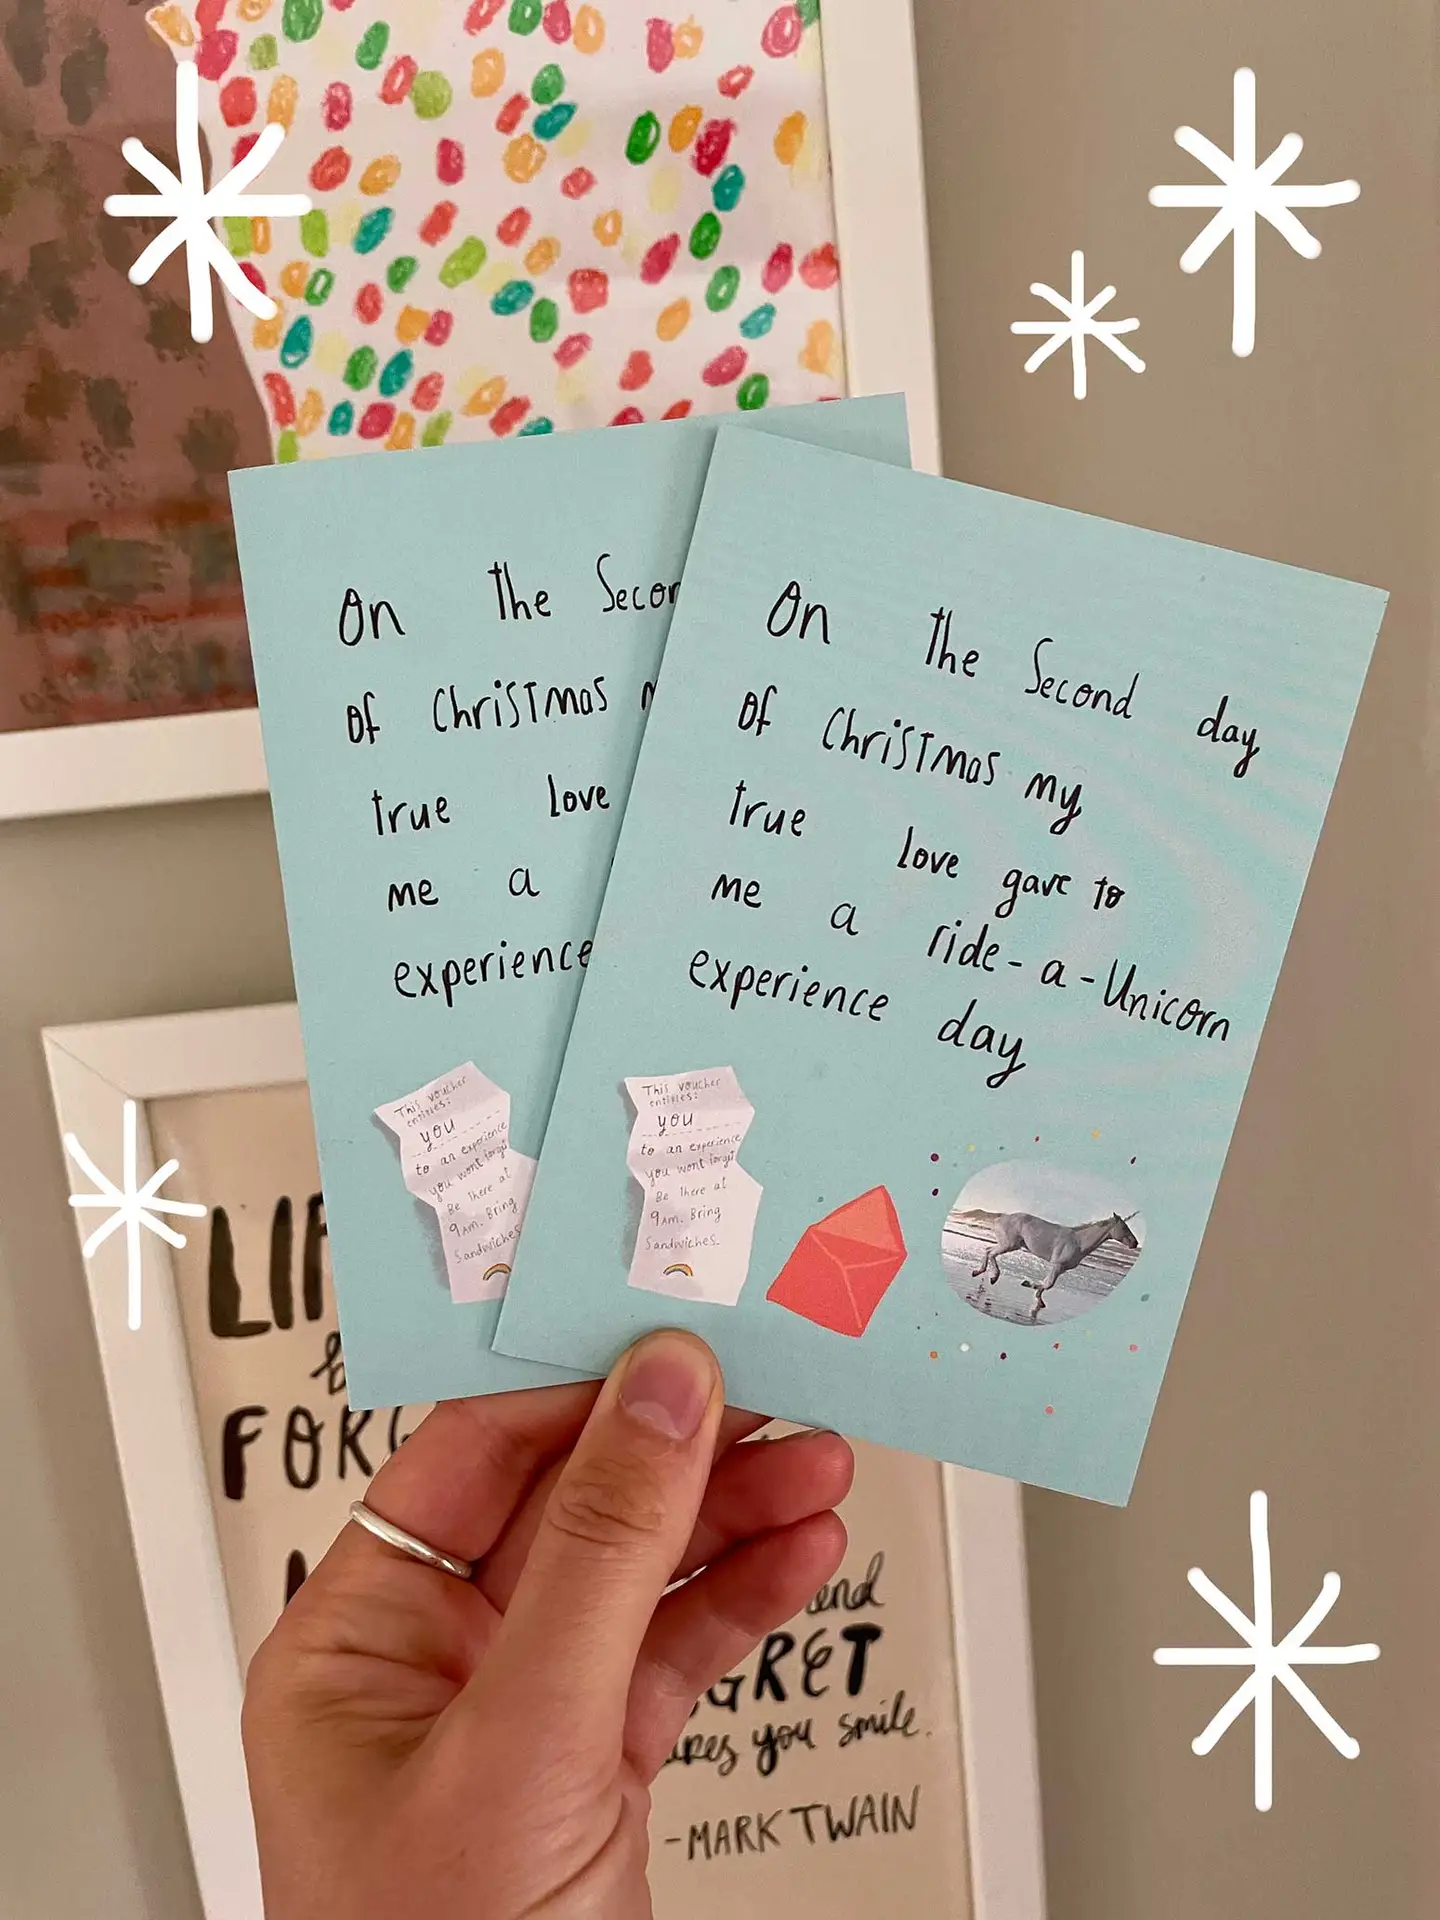 On the Secon
of Christmas
true love
me a
experience
This voucher
entitles:
you
to an experience
you wont forget
Be there at
9AM. Bring
Sandwiches
On the Second day
of Christmas my
true love gave to
me a ride-a-Unicorn
experience day
This voucher
entitles:
you
to an experience
you wont forget
Be there at
9AM. Bring
Sandwiches
LIF
FORG
and
GRET
kes you smile.
-MARK TWAIN